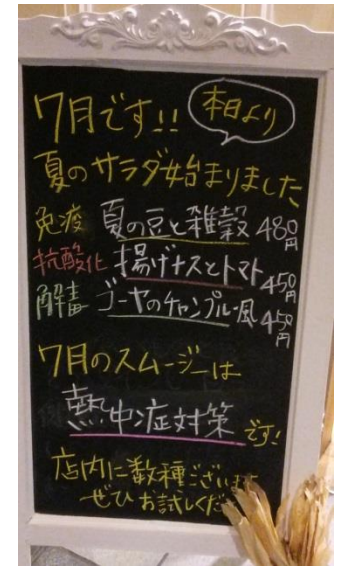 7月です!!
本日より
夏のサラダ始まりました
免疫 夏の豆と雑穀 480円
抗酸化 揚げナスとトマト 450円
解毒 ゴーヤのチャンプルー風 450円
7月のスムージーは
熱中症対策です!
店内に数種ございます
ぜひお試しくだ